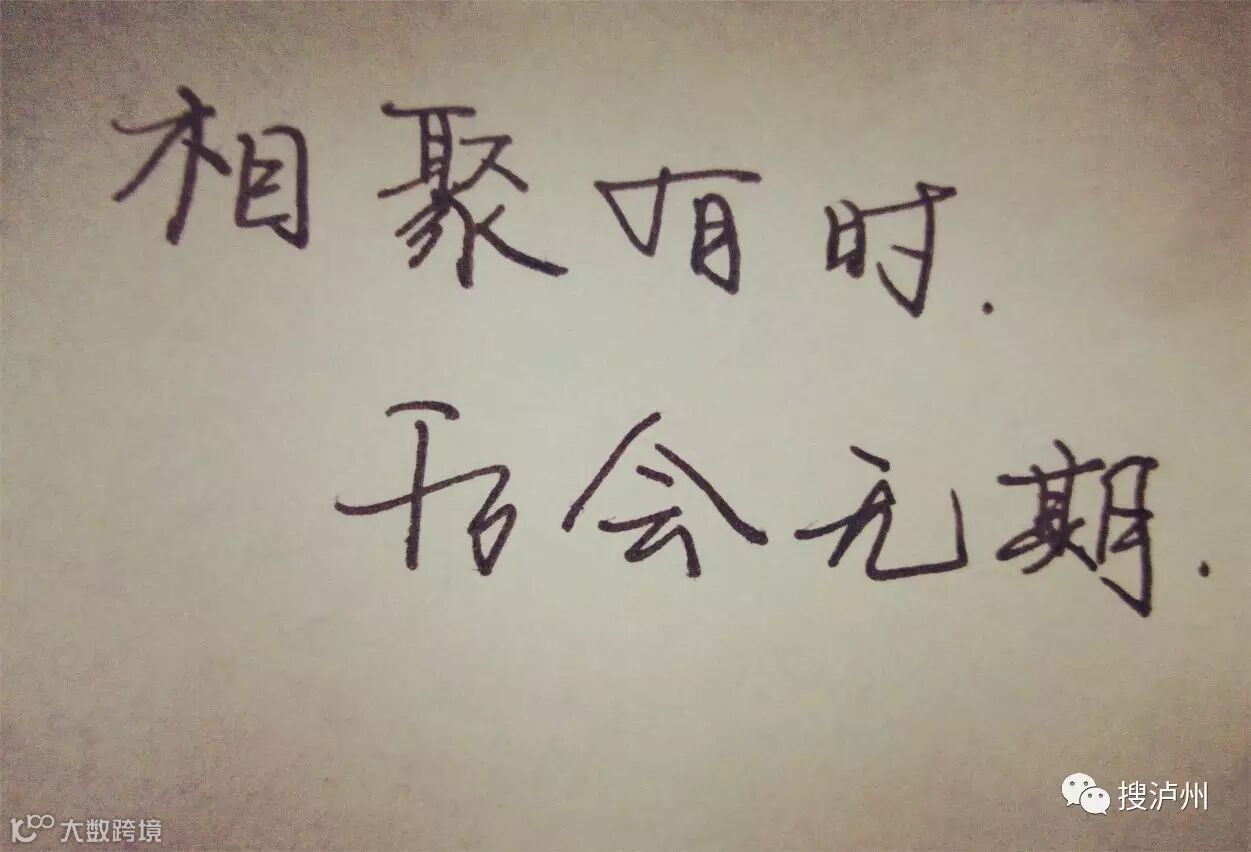 相聚有时.
后会无期.
搜泸州
大数跨境